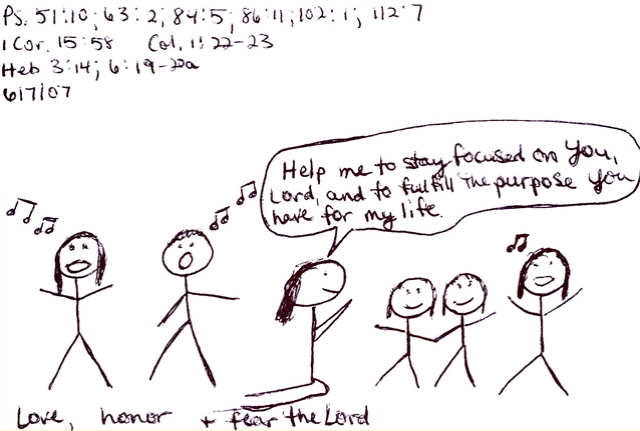 Ps. 51:10; 63:2; 84:5; 86:11; 102:1; 112:7
1 Cor. 15:58 Col. 1:22-23
Heb 3:14; 6:19-20a
6/7/07
Help me to stay focused on You,
Lord, and to fulfill the purpose You
have for my life.
Love, honor + fear the Lord